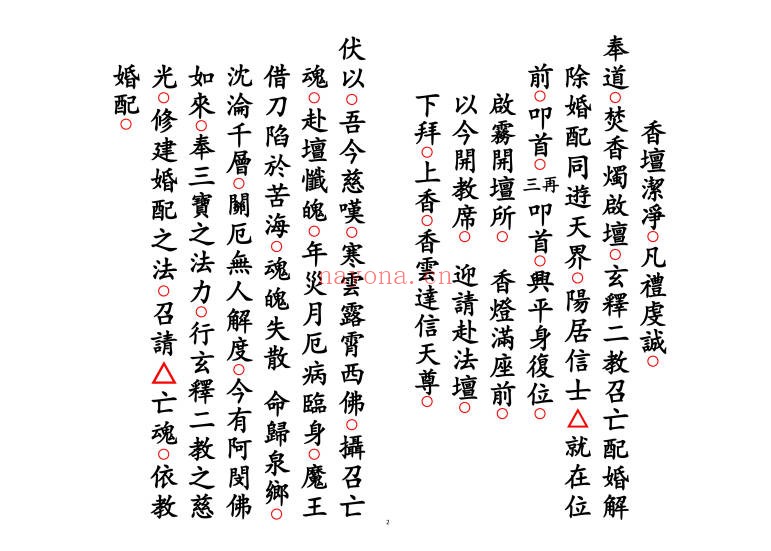 香壇潔凈○凡禮虔誠○
奉道○焚香燭啟壇○玄釋二教召亡配婚解
除婚配同遊天界○陽居信士△就在位
前○叩首○三再叩首○興平身復位○
啟霧開壇所 香燈滿座前○
以今開教席○ 迎請赴法壇○
下拜○上香○香雲達信天尊○
伏以○吾今慈嘆○寒雲露霄西佛○攝召亡
魂○赴壇懺魄○年災月厄病臨身○魔王
借刀陷於苦海○魂魄失散 命歸泉鄉○
沈淪千層○關厄無人解度○今有阿閔佛
如來○奉三寶之法力○行玄釋二教之慈
光○修建婚配之法○召請△亡魂○依教
婚配○
nayona.cn
2